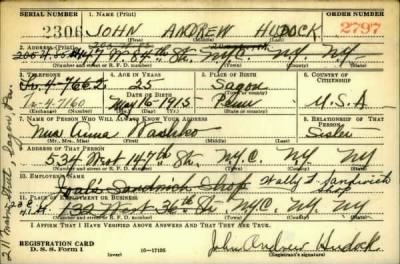 SERIAL NUMBER 1. NAME (Print) ORDER NUMBER
2306 JOHN ANDREW HUDOCK 2797
(First) (Middle) (Last)
2. ADDRESS (Print)
W. 84th St. N.Y.C. N.Y. NY
(Number and street or R. F. D. number) (Town) (County) (State)
3. TELEPHONE 4. AGE IN YEARS 5. PLACE OF BIRTH 6. COUNTRY OF CITIZENSHIP
Tr. 4-7662 25 Sagon
DATE OF BIRTH
Tr-4-7160 May 16-1915 Penn U.S.A.
(Exchange) (Number) (Mo.) (Day) (Yr.) (State or country)
7. NAME OF PERSON WHO WILL ALWAYS KNOW YOUR ADDRESS 8. RELATIONSHIP OF THAT PERSON
Mrs Anna Washko Sister
(Mr., Mrs., Miss) (First) (Middle) (Last)
9. ADDRESS OF THAT PERSON
534 West 147th St. N.Y.C. NY NY
(Number and street or R. F. D. number) (Town) (County) (State)
10. EMPLOYER'S NAME
Sandwich Shop Wally's Sandwich Shop
11. PLACE OF EMPLOYMENT OR BUSINESS
132 West 36th St. N.Y.C. NY NY
(Number and street or R. F. D. number) (Town) (County) (State)
I AFFIRM THAT I HAVE VERIFIED ABOVE ANSWERS AND THAT THEY ARE TRUE.
REGISTRATION CARD
D. S. S. Form 1 (over) 16-17105 John Andrew Hudock
(Registrant's signature)
211 Main Street, Sagon Pa.